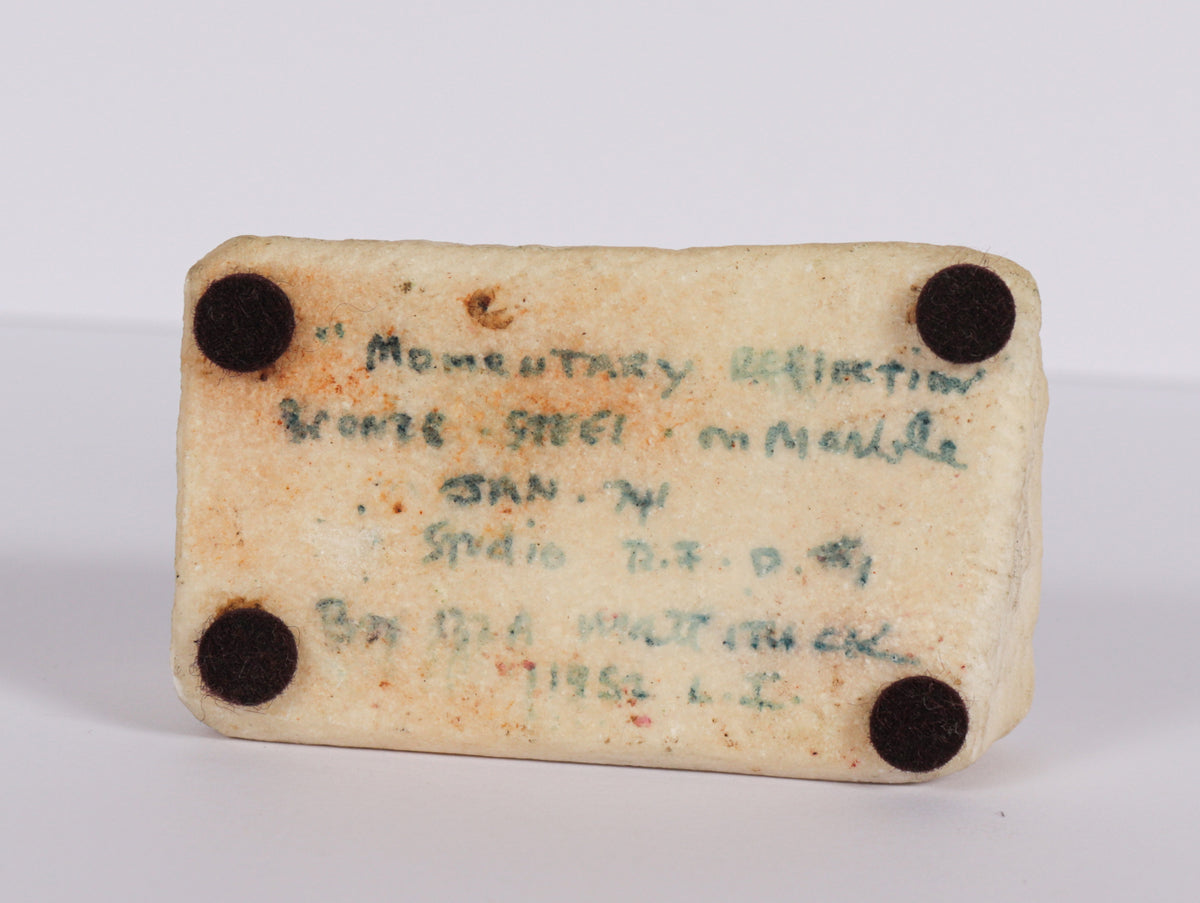 " MOMENTARY REFLECTION
BRONZE - STEEL - on Marble
JAN. 74
Studio R.F.D. #1
Box MATTITUCK
11952 L.I.